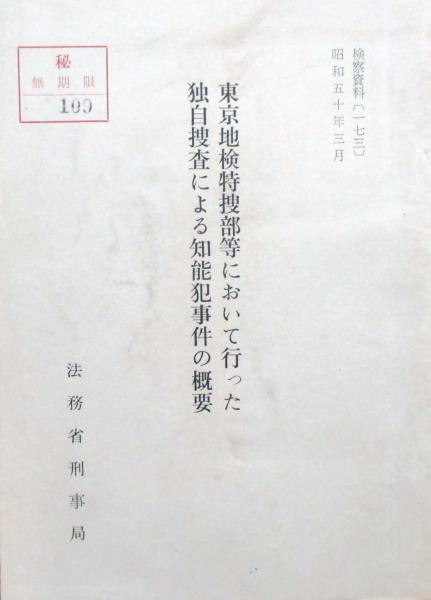 検察資料〔一七三〕
昭和五十年三月
東京地検特捜部等において行った
独自捜査による知能犯事件の概要
法務省刑事局
秘
無期限
109